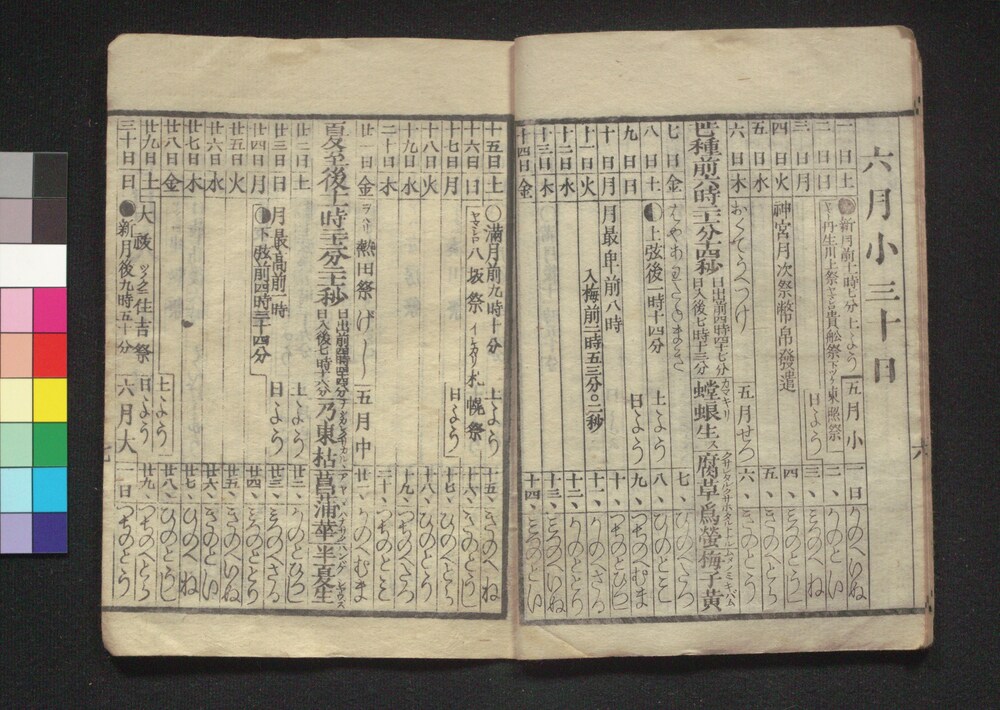 六月小三十日
一日土 新月前十一時七分 土よう 五月小 一日 かのといぬ
二日日 丹生川上祭 貴船祭 東照祭 日よう 二、かのとい
三日月 三、みつのへね
四日火 神宮月次祭幣帛發遣 四、みつのとうし
五日水 五月せつ 五、きのへとら
六日木 おくてうへつけ 六、きのとう
芒種前八時 日出前四時廿七分 日入後七時十三分 螳螂生ス 腐草爲螢 梅子黄ム
七日金 七、ひのへたつ
八日土 上弦後一時十四分 土よう 八、ひのとみ
九日日 日よう 九、つちのへむま
十日月 月最卑前八時 十、つちのとひつし
十一日火 入梅前二時五三分〇二秒 十一、かのへさる
十二日水 十二、かのととり
十三日木 十三、みつのへいぬ
十四日金 十四、みつのとい
六
十五日土 満月前九時十分 土よう 十五、きのへね
十六日日 ヤマシロ八坂祭 札幌祭 日よう 十六、きのとうし
十七日月 十七、ひのへとら
十八日火 十八、ひのとう
十九日水 十九、つちのへたつ
二十日木 二十、つちのとみ
廿一日金 熱田祭 げし 五月中 廿一、かのへむま
夏至後 乃東枯 菖蒲華 半夏生
廿二日土 土よう 廿二、かのとひつし
廿三日日 月最高前一時 日よう 廿三、みつのへさる
廿四日月 下弦前四時三十四分 廿四、みつのととり
廿五日火 廿五、きのへいぬ
廿六日水 廿六、きのとい
廿七日木 廿七、ひのへね
廿八日金 廿八、ひのとうし
廿九日土 大祓 住吉祭 土よう 廿九、つちのへとら
三十日日 新月後九時五十分 日よう 六月大 一日 つちのとう
七